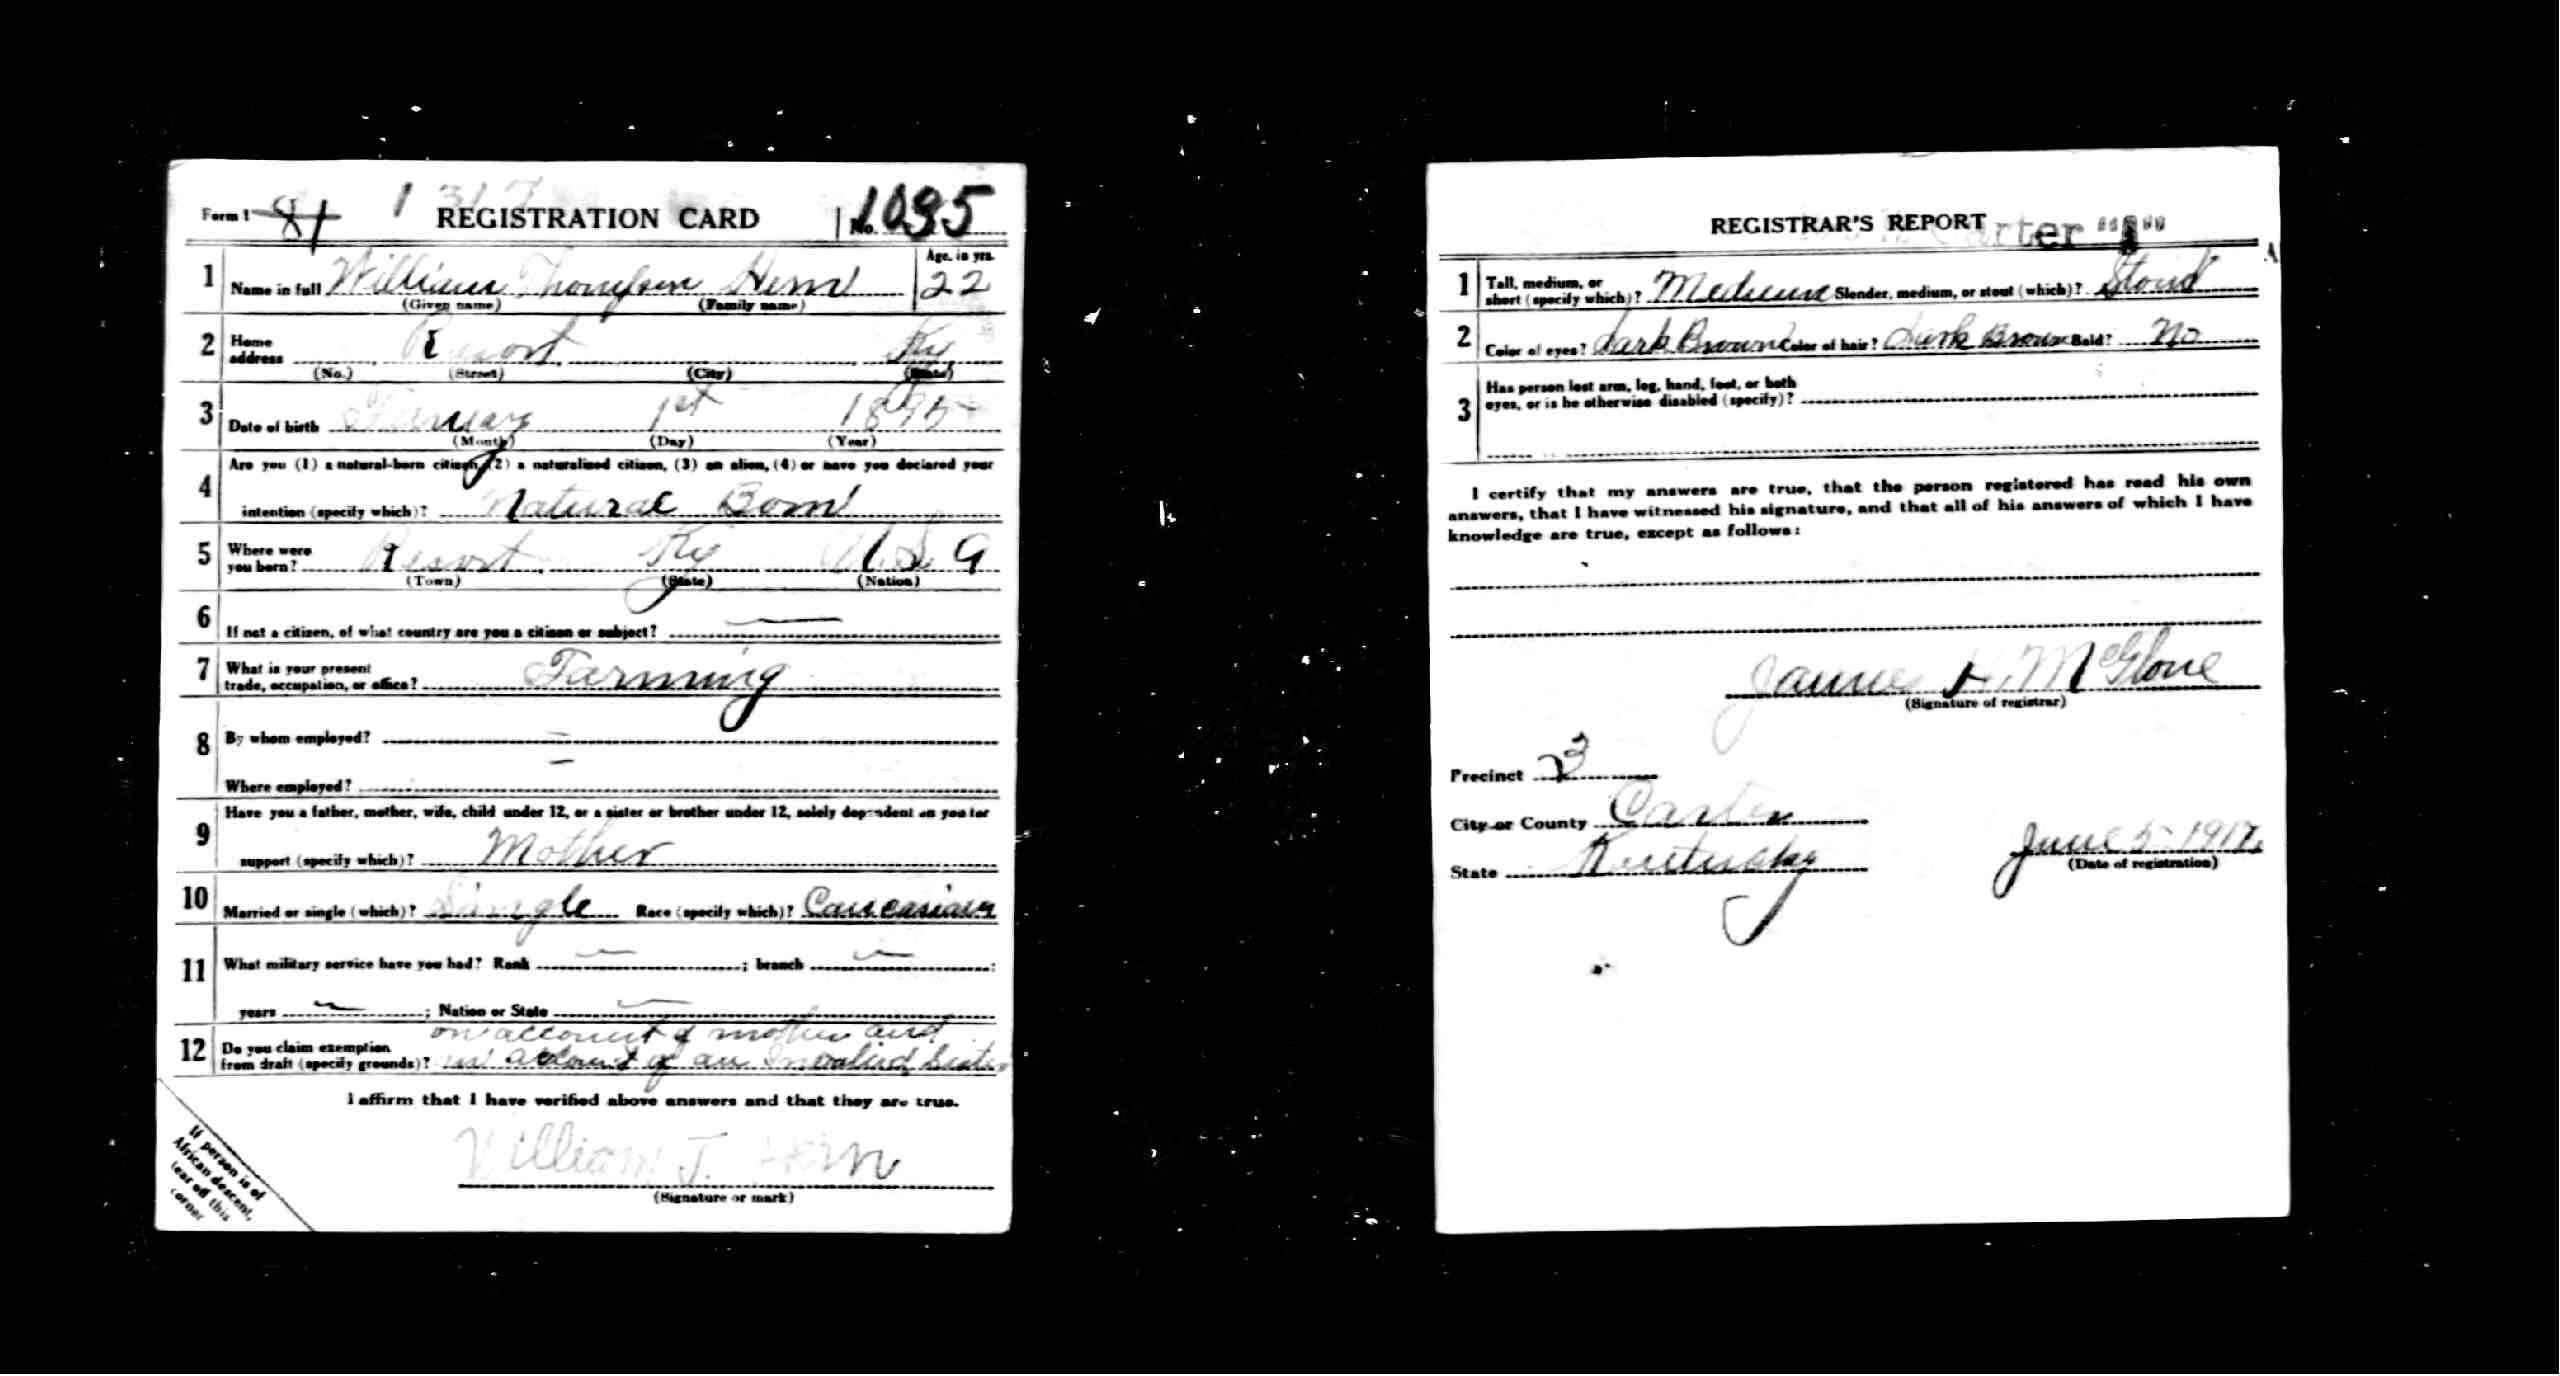 Form 1 81 1 317 REGISTRATION CARD No. 1095
1 Name in full William Thompson Hern Age, in yrs. 22
(Given name) (Family name)
2 Home address Resort Ky
(No.) (Street) (City) (State)
3 Date of birth 1st 1895
(Month) (Day) (Year)
4 Are you (1) a natural-born citizen, (2) a naturalized citizen, (3) an alien, (4) or have you declared your
intention (specify which)? Natural Born
5 Where were you born? Resort Ky U.S.A
(Town) (State) (Nation)
6 If not a citizen, of what country are you a citizen or subject? —
7 What is your present trade, occupation, or office? Farming
8 By whom employed? —
Where employed? —
9 Have you a father, mother, wife, child under 12, or a sister or brother under 12, solely dependent on you for
support (specify which)? Mother
10 Married or single (which)? Single Race (specify which)? Caucasian
11 What military service have you had? Rank — ; branch — ;
years — ; Nation or State —
on account of mother and
12 Do you claim exemption from draft (specify grounds)? account of an Invalied Sister
I affirm that I have verified above answers and that they are true.
William T. Hern
(Signature or mark)
If person is of
African descent,
tear off this
corner
REGISTRAR'S REPORT
Carter
1 Tall, medium, or short (specify which)? Medium Slender, medium, or stout (which)? Stout
2 Color of eyes? Dark Brown Color of hair? Dark Brown Bald? No
3 Has person lost arm, leg, hand, foot, or both
eyes, or is he otherwise disabled (specify)?
I certify that my answers are true, that the person registered has read his own
answers, that I have witnessed his signature, and that all of his answers of which I have
knowledge are true, except as follows:
James H. McGlone
(Signature of registrar)
Precinct 3
City or County Carter
State Kentucky June 5 1917
(Date of registration)